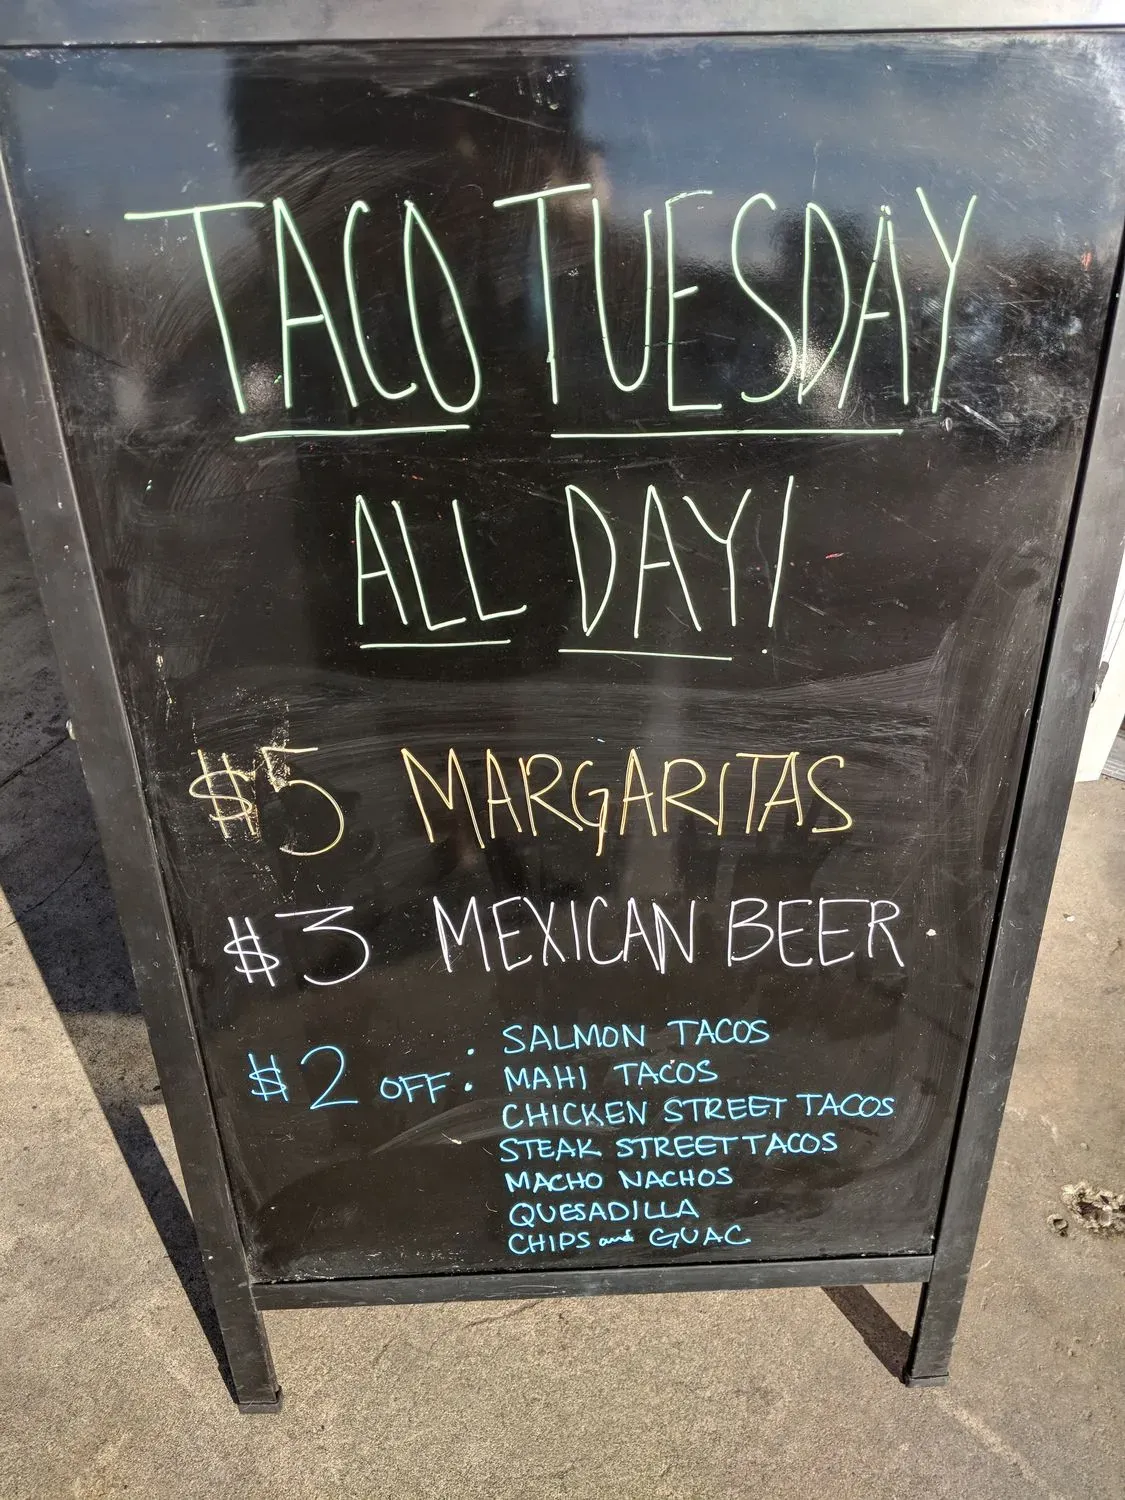 TACO TUESDAY
ALL DAY!
$5 MARGARITAS
$3 MEXICAN BEER
$2 OFF: SALMON TACOS
MAHI TACOS
CHICKEN STREET TACOS
STEAK STREET TACOS
MACHO NACHOS
QUESADILLA
CHIPS and GUAC